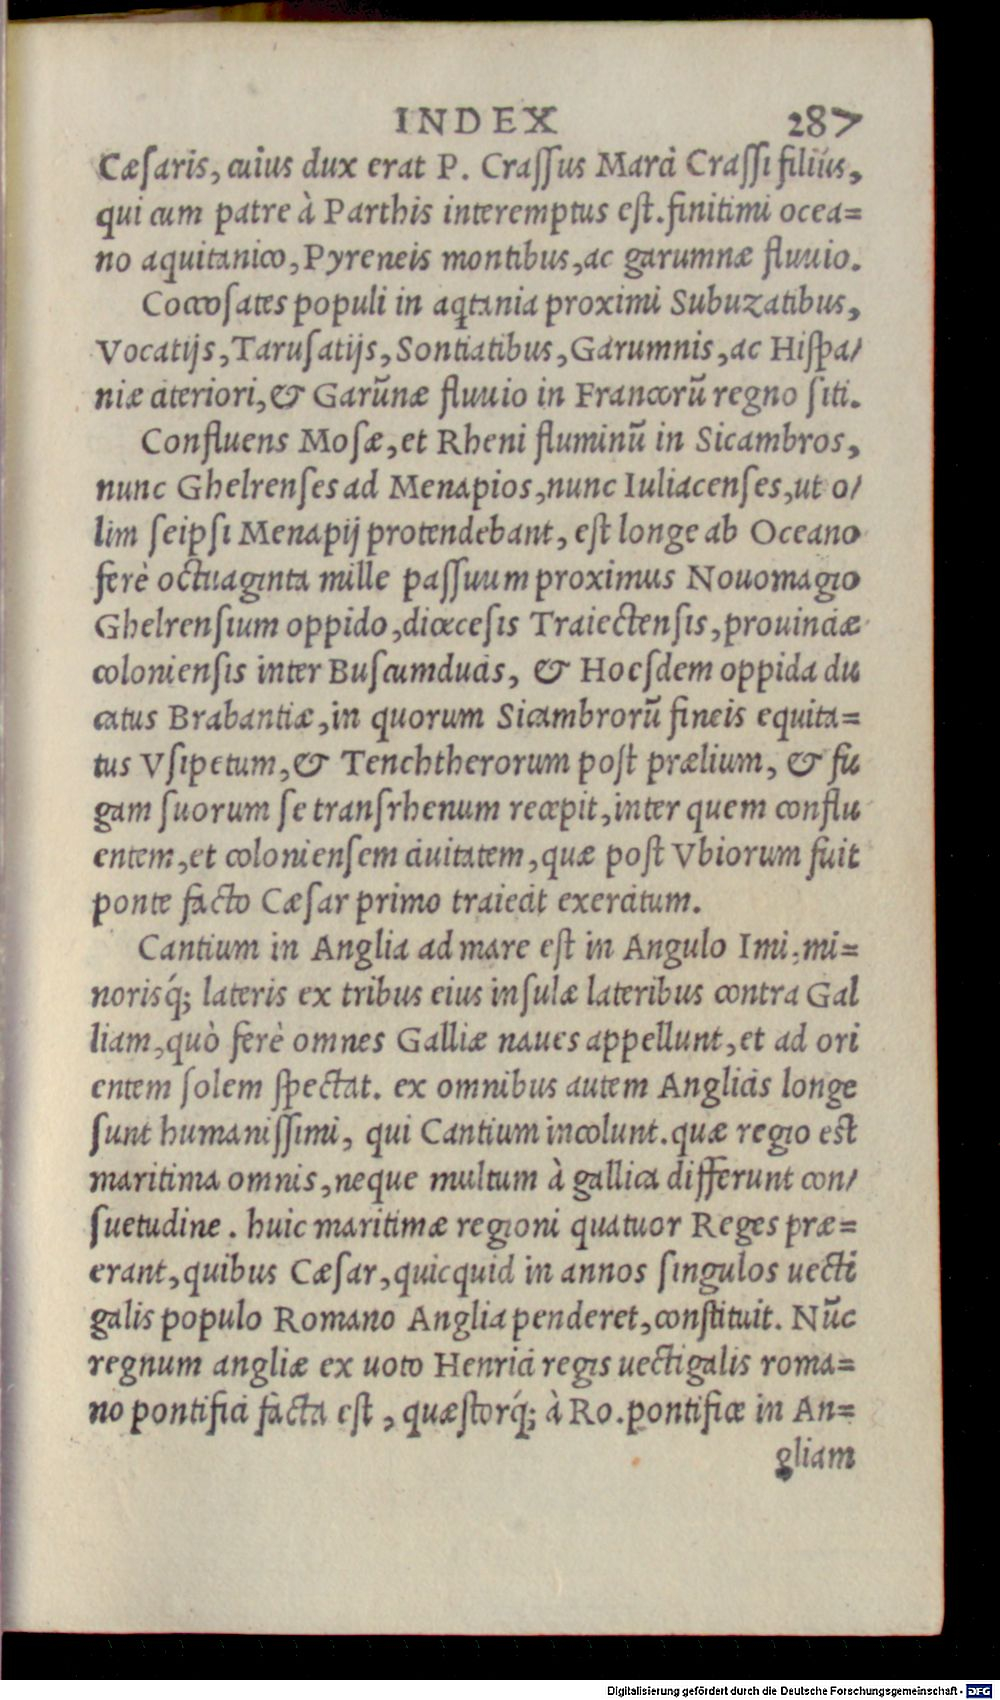 INDEX 287
Cæſaris, cuius dux erat P. Craſſus Marci Craſſi filius,
qui cum patre à Parthis interemptus eſt. finitimi ocea=
no aquitanico, Pyreneis montibus, ac garumnæ fluuio.
Cocoſates populi in aqtania proximi Subuzatibus,
Vocatijs, Taruſatijs, Sontiatibus, Garumnis, ac Hiſpa/
niæ citeriori, & Garūnæ fluuio in Francorū regno ſiti.
Confluens Moſæ, et Rheni fluminū in Sicambros,
nunc Ghelrenſes ad Menapios, nunc Iuliacenſes, ut o/
lim ſeipſi Menapij protendebant, eſt longe ab Oceano
ferè octuaginta mille paſſuum proximus Nouomagio
Ghelrenſium oppido, diœceſis Traiectenſis, prouinciæ
colonienſis inter Buſcumducis, & Hoeſdem oppida du
catus Brabantiæ, in quorum Sicambrorū fineis equita=
tus Vſipetum, & Tenchtherorum poſt prælium, & fu
gam ſuorum ſe tranſrhenum recepit, inter quem conflu
entem, et colonienſem ciuitatem, quæ poſt Vbiorum fuit
ponte facto Cæſar primo traiecit exercitum.
Cantium in Anglia ad mare eſt in Angulo Imi, mi=
norisq́; lateris ex tribus eius inſulæ lateribus contra Gal
liam, quò ferè omnes Galliæ naues appellunt, et ad ori
entem ſolem ſpectat. ex omnibus autem Anglicis longe
ſunt humaniſſimi, qui Cantium incolunt. quæ regio est
maritima omnis, neque multum à gallica differunt con/
ſuetudine. huic maritimæ regioni quatuor Reges præ=
erant, quibus Cæſar, quicquid in annos ſingulos uecti
galis populo Romano Anglia penderet, conſtituit. Nūc
regnum angliæ ex uoto Henrici regis uectigalis roma=
no pontifici facta eſt, quæſtorq́; à Ro. pontifice in An=
gliam
Digitalisierung gefördert durch die Deutsche Forschungsgemeinschaft - DFG